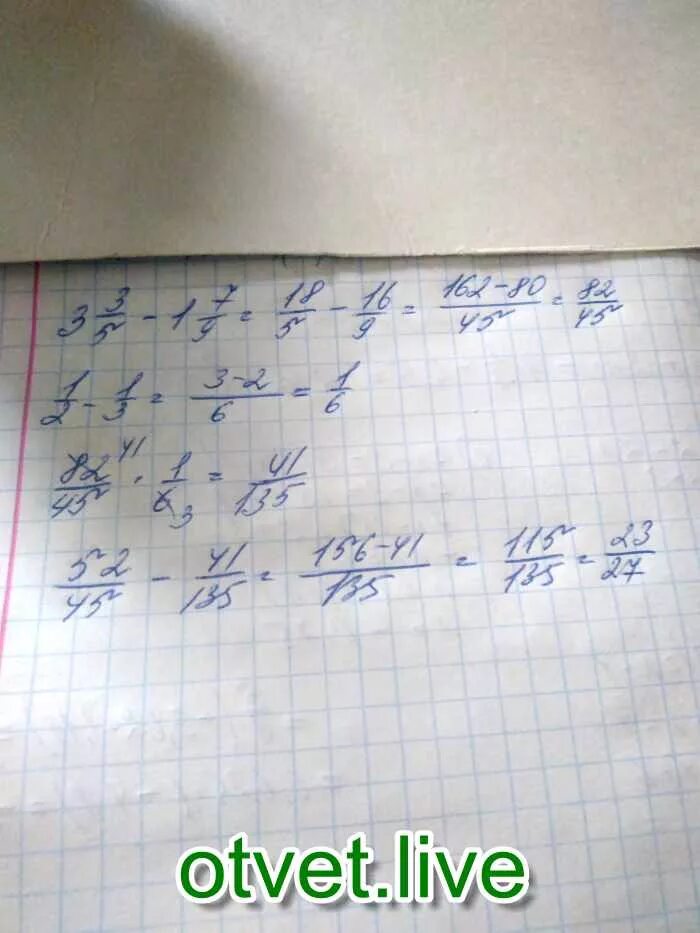 3 3/5 - 1 7/9 = 18/5 - 16/9 = (162-80)/45 = 82/45
1/2 - 1/3 = (3-2)/6 = 1/6
82 41/45 · 1/6 3 = 41/135
52/45 - 41/135 = (156-41)/135 = 115/135 = 23/27
otvet.live